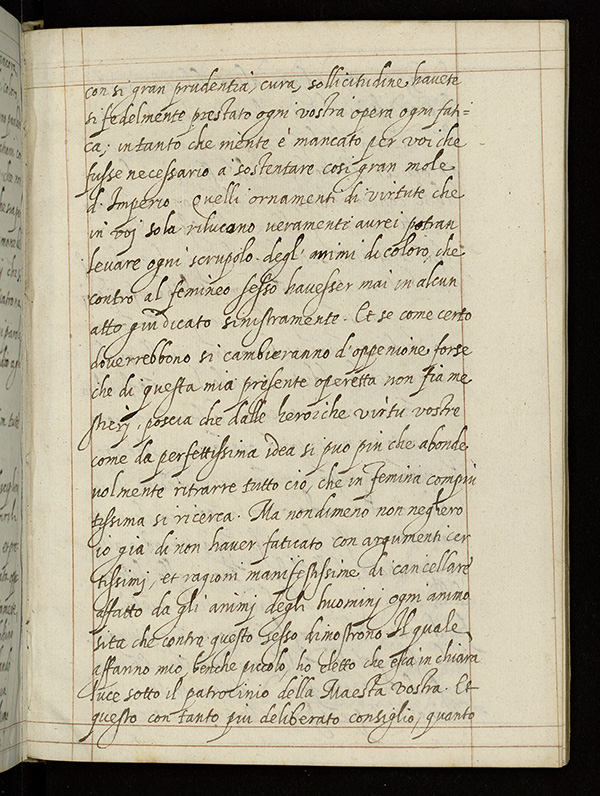 con si gran prudentia, cura, sollicitudine, havete
si fedelmente prestato ogni vostra opera ogni fati=
ca; in tanto che niente è mancato per voi che
fusse necessario a sostentare così gran mole
d'Imperio. Quelli ornamenti di virtute che
in voj sola rilucano veramenti aurei potran
levare ogni scrupolo degl' animi di coloro, che
contro al femineo sesso havesser mai in alcun
atto giudicato sinistramente. Et se come certo
doverrebbono si cambieranno d'oppenione forse
che di questa mia presente operetta non fia me
stierj, poscia che dalle heroiche virtu vostre
come da perfettissima idea si puo piu che abonde
volmente ritrarre tutto ciò, che in femina compiu
tissima si ricerca. Ma nondimeno non neghero
io già di non haver faticato con argumenti cer
tissimj, et ragioni manifestissime di cancellare
affatto da gli animj degli huominj ogni animo
sita che contra questo sesso dimostrono. Il quale
affanno mio, benche piccolo, ho eletto che esca in chiara
luce sotto il patrocinio della Maesta vostra. Et
questo con tanto piu deliberato consiglio, quanto